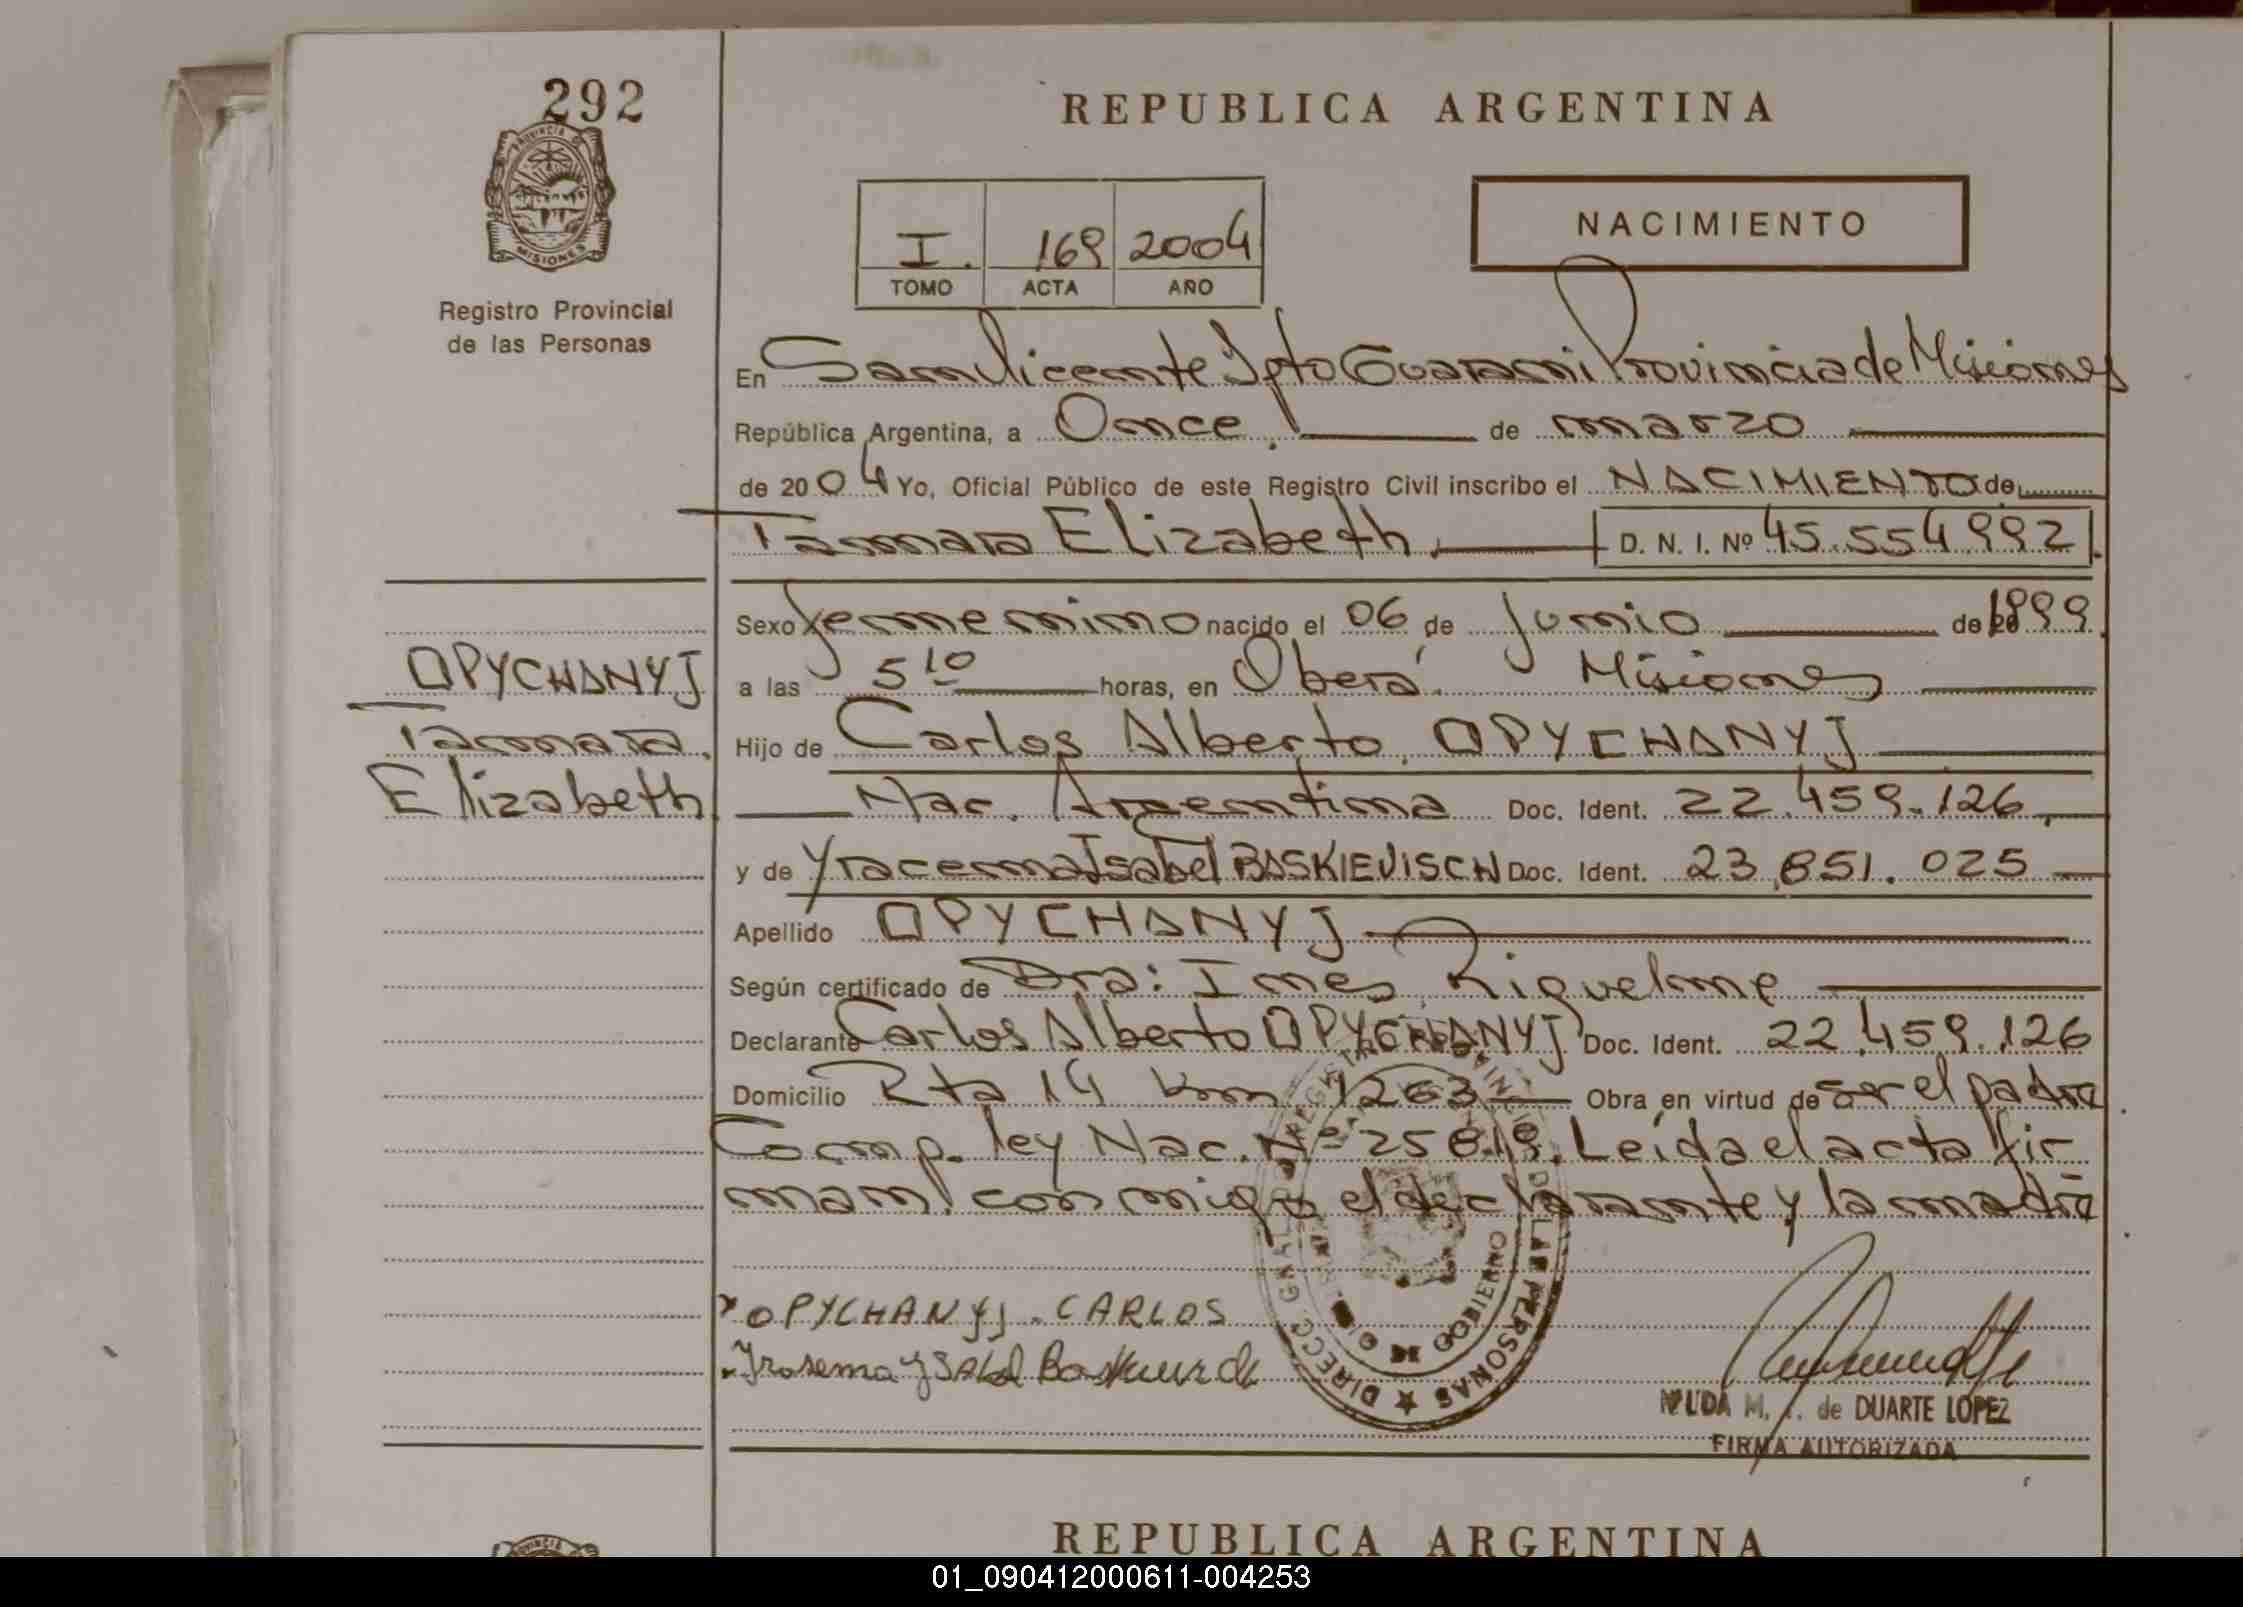 292
PROVINCIA DE
MISIONES
Registro Provincial
de las Personas
OPYCHANYJ
Tamara
Elizabeth
REPUBLICA ARGENTINA
I. 169 2004
TOMO ACTA AÑO
NACIMIENTO
En San Vicente Dpto Guarani Provincia de Misiones
República Argentina, a Once. de marzo
de 2004 Yo, Oficial Público de este Registro Civil inscribo el NACIMIENTO de
Tamara Elizabeth. D. N. I. Nº 45.554.992
Sexo femenino nacido el 06 de Junio de 1999
a las 5 10 horas, en Oberá. Misiones
Hijo de Carlos Alberto OPYCHANYJ
Nac. Argentina Doc. Ident. 22.459.126
y de Yracema Isabel BASKIEVISCH Doc. Ident. 23.851.025
Apellido OPYCHANYJ
Según certificado de Dra: Ines Riquelme
Declarante Carlos Alberto OPYCHANYJ Doc. Ident. 22.459.126
Domicilio Rta 14 km 1263 Obra en virtud de ser el padre
Comp. ley Nac. Nº 25819. Leída el acta fir
man conmigo el declarante y la madre
OPYCHANYJ. CARLOS
DIRECC. GRAL. DE LAS PERSONAS
DE GOBIERNO
M. de DUARTE LOPEZ
FIRMA AUTORIZADA
REPUBLICA ARGENTINA
01_090412000611-004253